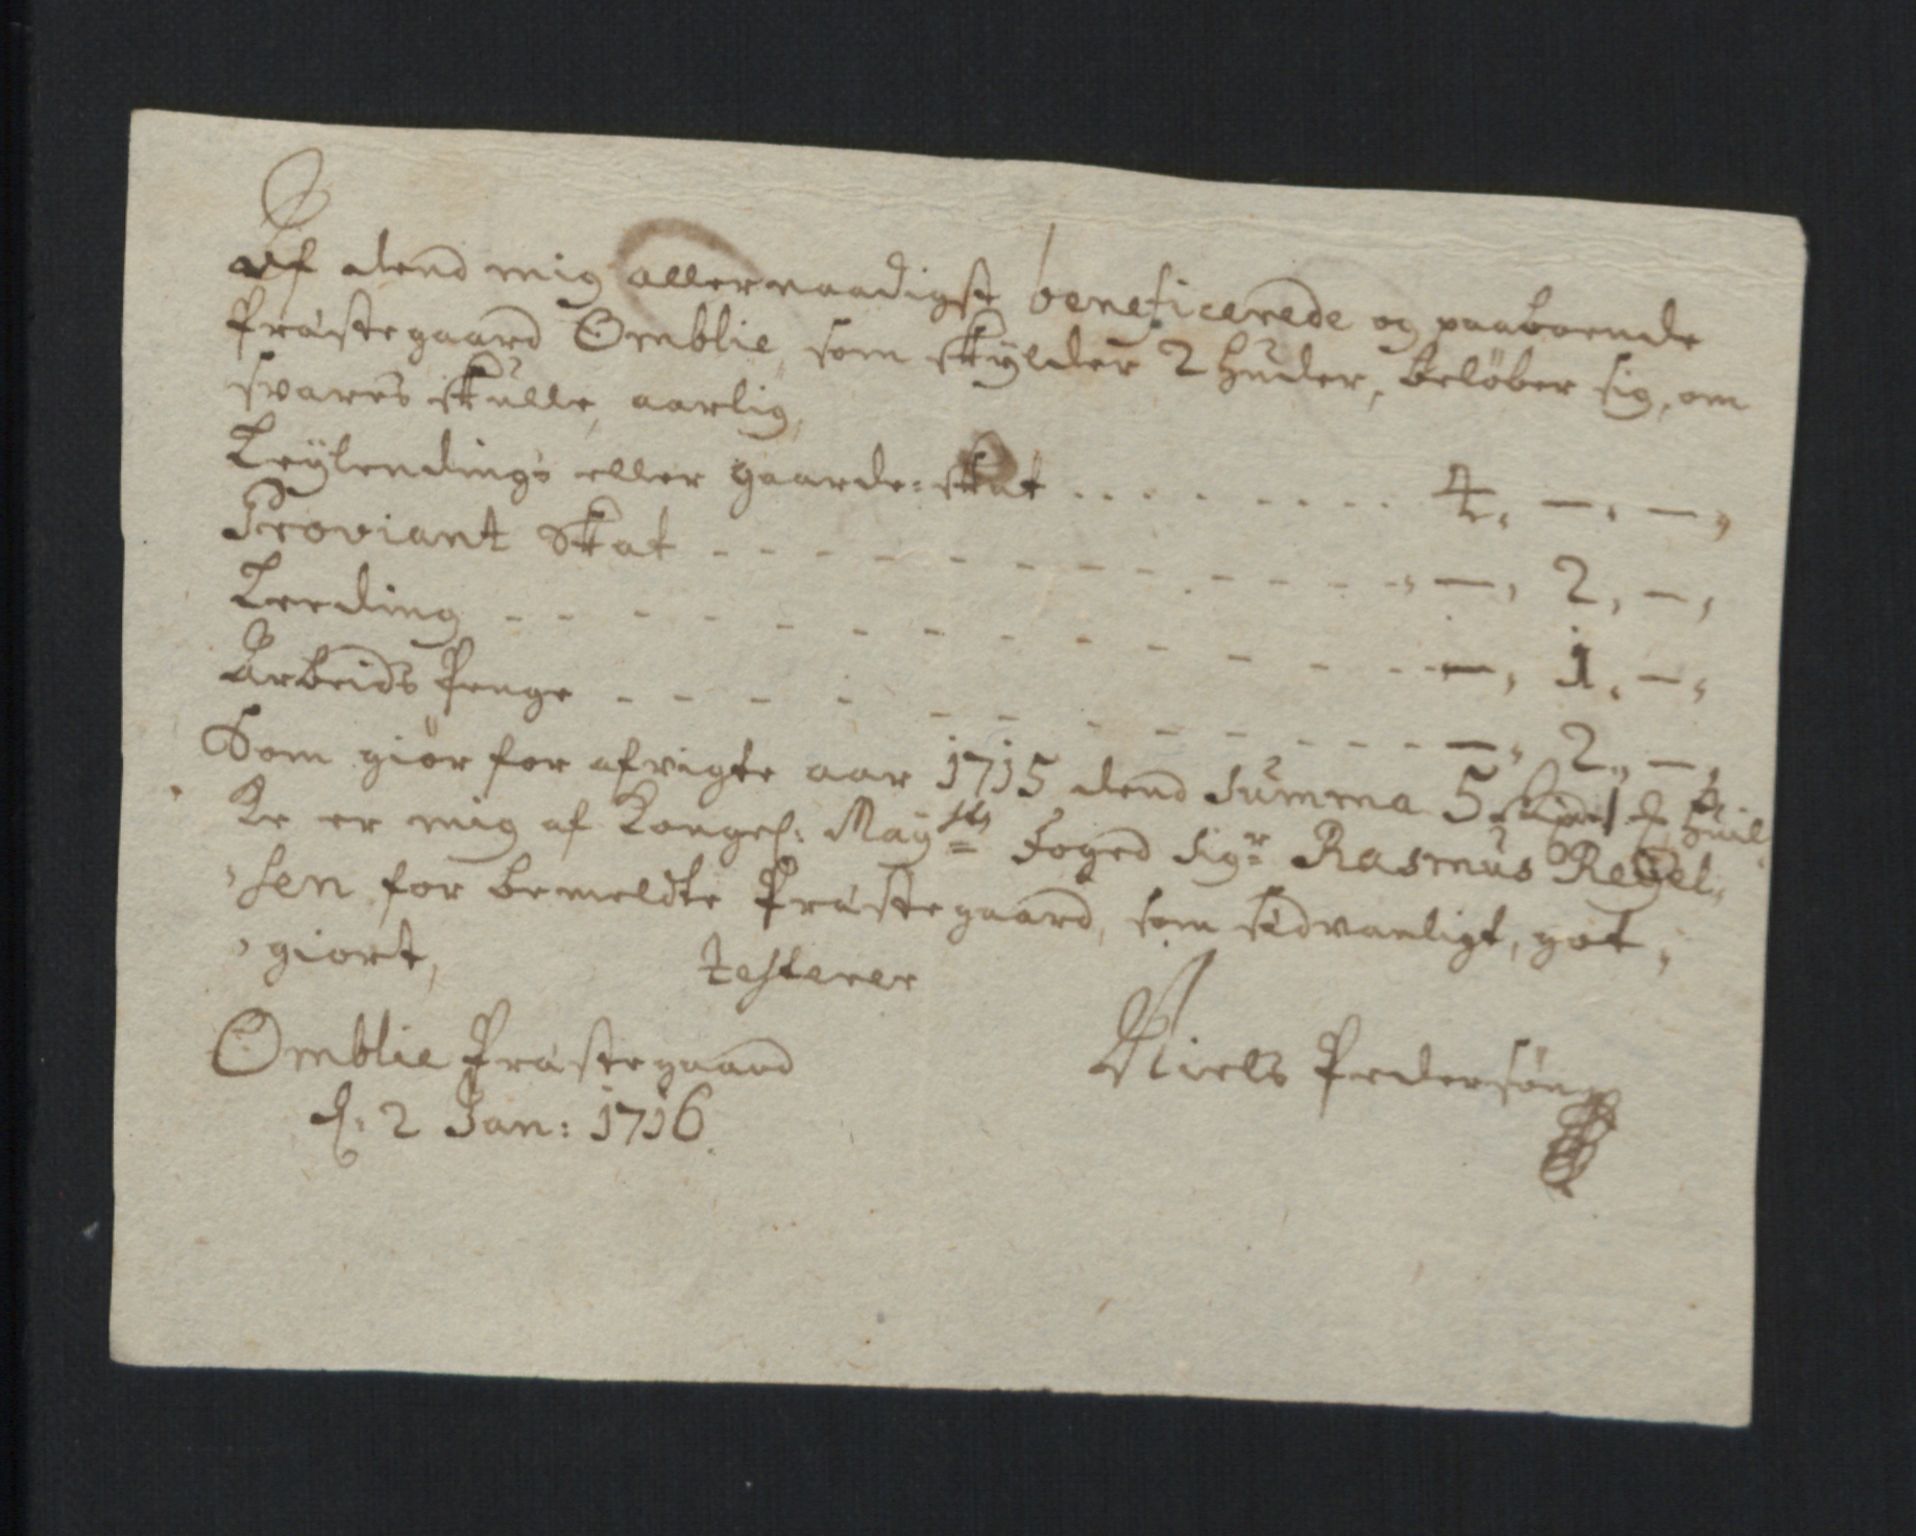 Af dend mig allernaadigst beneficerede og paaboende
Præstegaard Omblie, som skÿlder 2 huder, beløber sig, om
svares skulle, aarlig,
Leÿlendings eller gaarde-skat . . . . . . . . . 4, —, —,
Proviant Skat - - - - - - - - - - - —, 2, —,
Leeding - - - - - - - - - - - - - —, 1, —,
Arbeids Penge - - - - - - - - - - - —, 2, —,
Som giør for afvigte aar 1715 dend Summa 5 hvil-
Ke er mig af Kongel: Maÿsts Foged Sigr Rasmus
sen for bemeldte Præstegaard, som sædvanligt, got-
giort, testerer
Omblie Præstegaard
d: 2 Jan: 1716.
Niels Pedersøn